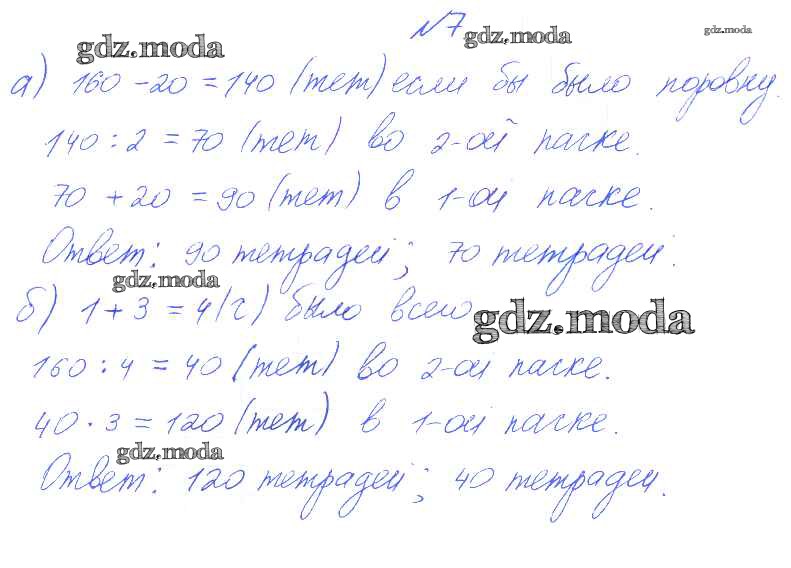 №7
gdz.moda gdz.moda gdz.moda
а) 160 - 20 = 140 (тет) если бы было поровну.
140 : 2 = 70 (тет) во 2-ой пачке.
70 + 20 = 90 (тет) в 1-ой пачке.
Ответ: 90 тетрадей; 70 тетрадей.
gdz.moda
б) 1 + 3 = 4 (ч) было всего
gdz.moda
160 : 4 = 40 (тет) во 2-ой пачке.
40 · 3 = 120 (тет) в 1-ой пачке.
gdz.moda
Ответ: 120 тетрадей; 40 тетрадей.